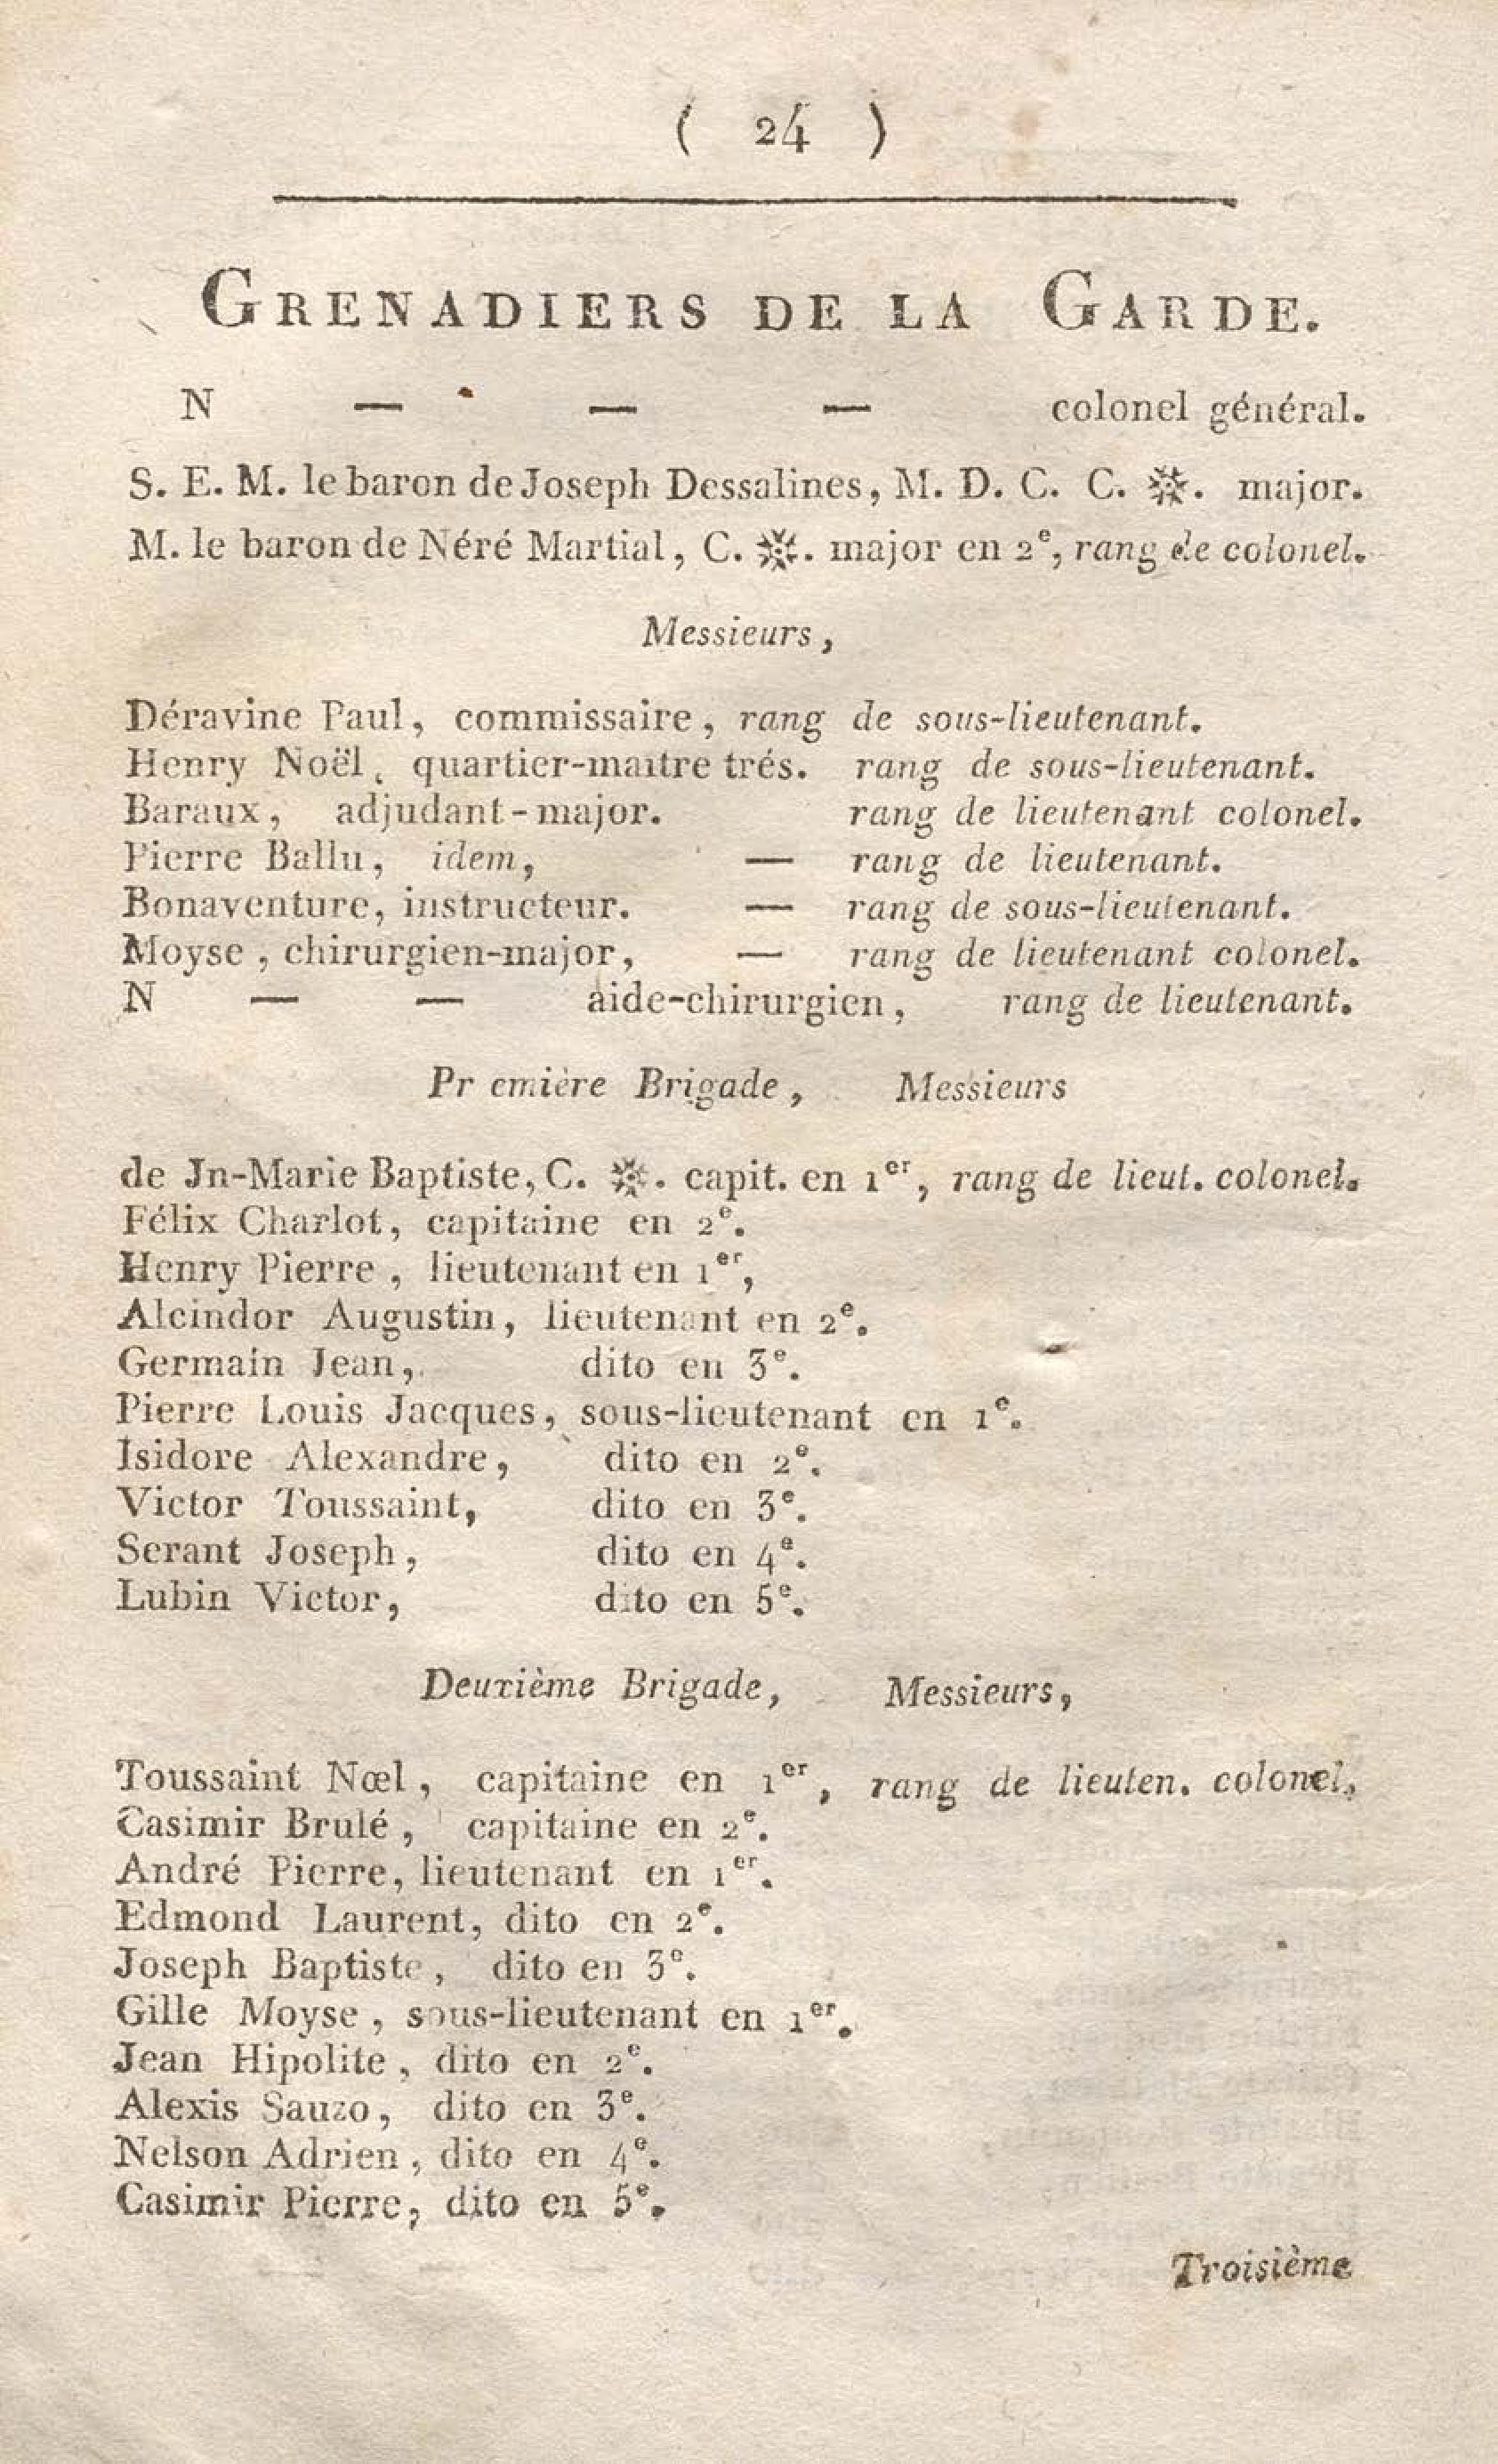 ( 24 )
GRENADIERS DE LA GARDE.
N — — — colonel général.
S. E. M. le baron de Joseph Dessalines, M. D. C. C. ※. major.
M. le baron de Néré Martial, C. ※. major en 2e, rang de colonel.
Messieurs,
Déravine Paul, commissaire, rang de sous-lieutenant.
Henry Noël, quartier-maître trés. rang de sous-lieutenant.
Baraux, adjudant-major. rang de lieutenant colonel.
Pierre Ballu, idem, — rang de lieutenant.
Bonaventure, instructeur. — rang de sous-lieutenant.
Moyse, chirurgien-major, — rang de lieutenant colonel.
N — — aide-chirurgien, rang de lieutenant.
Pr emière Brigade, Messieurs
de Jn-Marie Baptiste, C. ※. capit. en 1er, rang de lieut. colonel.
Félix Charlot, capitaine en 2e.
Henry Pierre, lieutenant en 1er,
Alcindor Augustin, lieutenant en 2e.
Germain Jean, dito en 3e.
Pierre Louis Jacques, sous-lieutenant en 1e.
Isidore Alexandre, dito en 2e.
Victor Toussaint, dito en 3e.
Serant Joseph, dito en 4e.
Lubin Victor, dito en 5e.
Deuxième Brigade, Messieurs,
Toussaint Nœl, capitaine en 1er, rang de lieuten. colonel,
Casimir Brulé, capitaine en 2e.
André Pierre, lieutenant en 1er.
Edmond Laurent, dito en 2e.
Joseph Baptiste, dito en 3e.
Gille Moyse, sous-lieutenant en 1er.
Jean Hipolite, dito en 2e.
Alexis Sauzo, dito en 3e.
Nelson Adrien, dito en 4e.
Casimir Pierre, dito en 5e.
Troisième